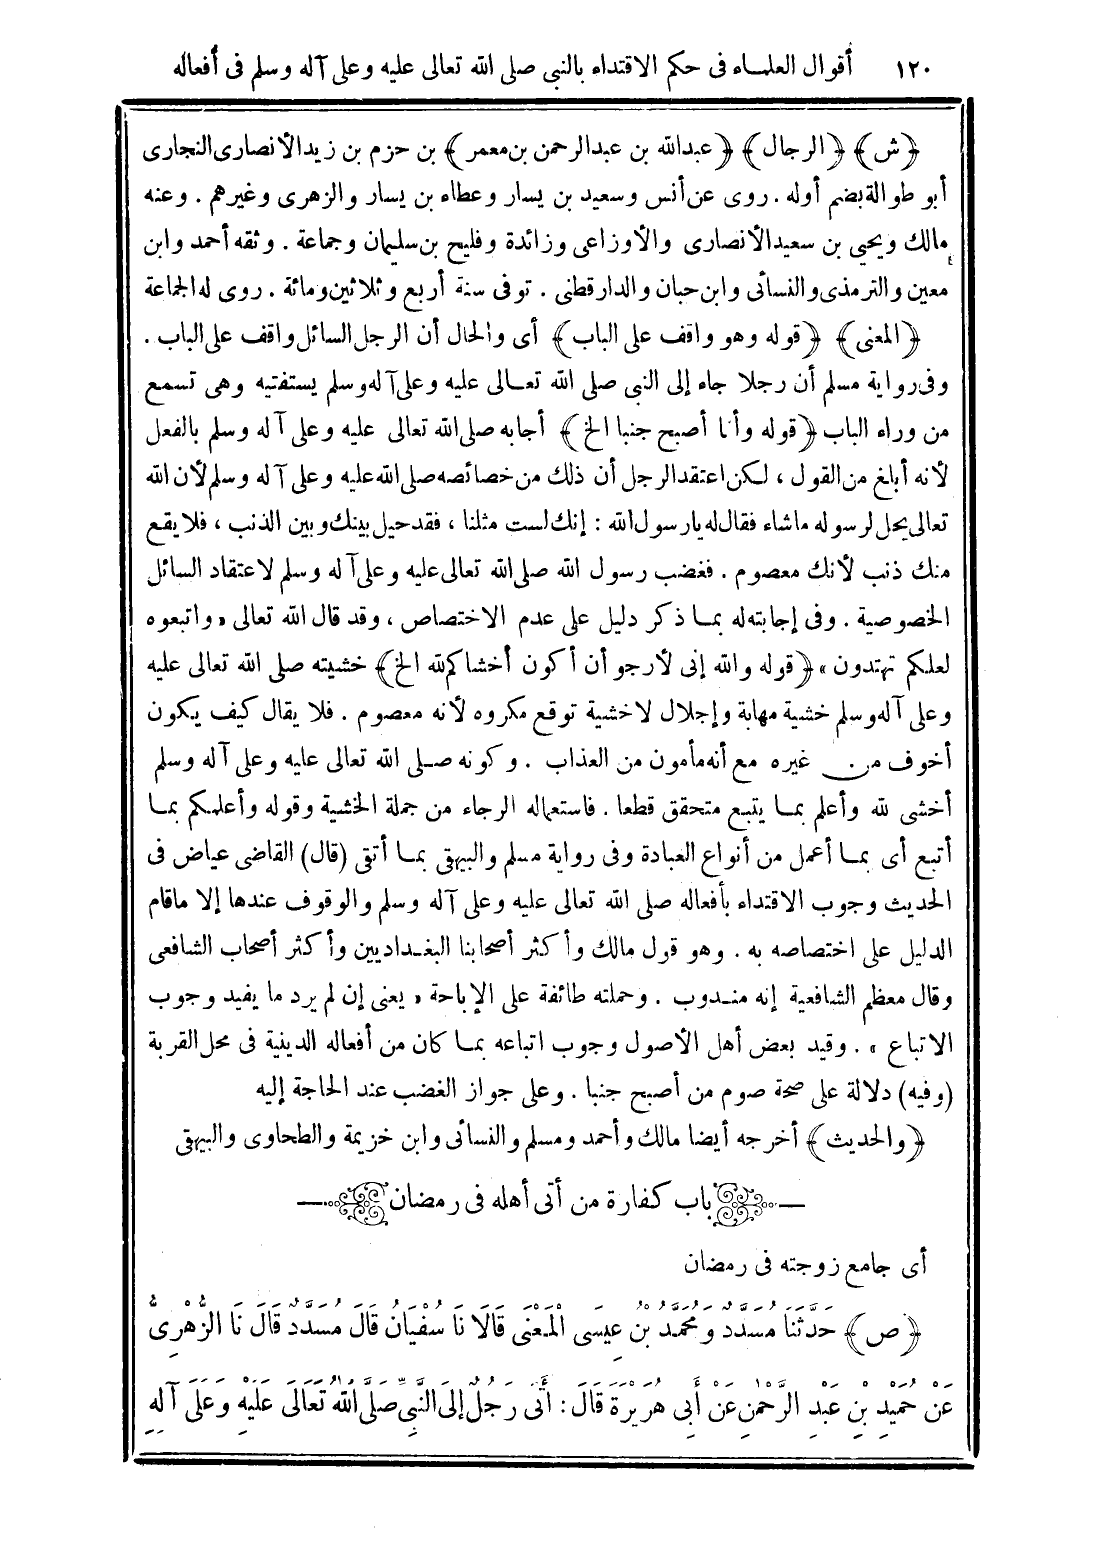 ١٢٠ أقوال العلماء فى حكم الاقتداء بالنبى صلى الله تعالى عليه وعلى آله وسلم فى أفعاله
﴿ش﴾ ﴿الرجال﴾ ﴿عبدالله بن عبدالرحمن بن معمر﴾ بن حزم بن زيد الأنصارى النجارى
أبو طوالة بضم أوله . روى عن أنس وسعيد بن يسار وعطاء بن يسار والزهرى وغيرهم . وعنه
مالك ويحيى بن سعيد الأنصارى والأوزاعى وزائدة وفليح بن سليمان وجماعة . وثقه أحمد وابن
معين والترمذى والنسائى وابن حبان والدارقطنى . توفى سنة أربع وثلاثين ومائة . روى له الجماعة
﴿المعنى﴾ ﴿قوله وهو واقف على الباب﴾ أى والحال أن الرجل السائل واقف على الباب .
وفى رواية مسلم أن رجلا جاء إلى النبى صلى الله تعالى عليه وعلى آله وسلم يستفتيه وهى تسمع
من وراء الباب ﴿قوله وأنا أصبح جنبا الخ﴾ أجابه صلى الله تعالى عليه وعلى آله وسلم بالفعل
لأنه أبلغ من القول ، لكن اعتقد الرجل أن ذلك من خصائصه صلى الله عليه وعلى آله وسلم لأن الله
تعالى يحل لرسوله ماشاء فقال له يارسول الله : إنك لست مثلنا ، فقد حيل بينك وبين الذنب ، فلا يقع
منك ذنب لأنك معصوم . فغضب رسول الله صلى الله تعالى عليه وعلى آله وسلم لاعتقاد السائل
الخصوصية . وفى إجابته له بما ذكر دليل على عدم الاختصاص ، وقد قال الله تعالى « واتبعوه
لعلكم تهتدون » ﴿قوله والله إنى لأرجو أن أكون أخشاكم لله الخ﴾ خشيته صلى الله تعالى عليه
وعلى آله وسلم خشية مهابة وإجلال لاخشية توقع مكروه لأنه معصوم . فلا يقال كيف يكون
أخوف من غيره مع أنه مأمون من العذاب . وكونه صلى الله تعالى عليه وعلى آله وسلم
أخشى لله وأعلم بما يتبع متحقق قطعا . فاستعماله الرجاء من جملة الخشية وقوله وأعلمكم بما
أتبع أى بما أعمل من أنواع العبادة وفى رواية مسلم والبيهقى بما أتقى (قال) القاضى عياض فى
الحديث وجوب الاقتداء بأفعاله صلى الله تعالى عليه وعلى آله وسلم والوقوف عندها إلا ماقام
الدليل على اختصاصه به . وهو قول مالك وأكثر أصحابنا البغداديين وأكثر أصحاب الشافعى
وقال معظم الشافعية إنه مندوب . وحملته طائفة على الإباحة « يعنى إن لم يرد ما يفيد وجوب
الاتباع » . وقيد بعض أهل الأصول وجوب اتباعه بما كان من أفعاله الدينية فى محل القربة
(وفيه) دلالة على صحة صوم من أصبح جنبا . وعلى جواز الغضب عند الحاجة إليه
﴿والحديث﴾ أخرجه أيضا مالك وأحمد ومسلم والنسائى وابن خزيمة والطحاوى والبيهقى
باب كفارة من أتى أهله فى رمضان
أى جامع زوجته فى رمضان
﴿ص﴾ حَدَّثَنَا مُسَدَّدٌ وَمُحَمَّدُ بْنُ عِيسَى الْمَعْنَى قَالَا نَا سُفْيَانُ قَالَ مُسَدَّدٌ قَالَ نَا الزُّهْرِىُّ
عَنْ حُمَيْدِ بْنِ عَبْدِ الرَّحْمٰنِ عَنْ أَبِى هُرَيْرَةَ قَالَ : أَتَى رَجُلٌ إِلَى النَّبِىِّ صَلَّى اللهُ تَعَالَى عَلَيْهِ وَعَلَى آلِهِ